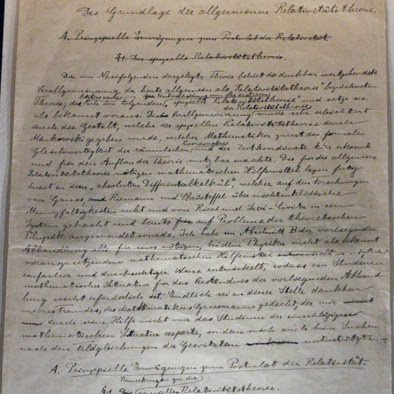 Die Grundlage der allgemeinen Relativitätstheorie.
A. Prinzipielle Erwägungen zum Postulat der Relativität.
§1. Die spezielle Relativitätstheorie.
Die im Nachfolgenden dargelegte Theorie bildet die denkbar weitgehendste
Verallgemeinerung der heute allgemein als „Relativitätstheorie" bezeichneten
Theorie; die im folgenden „spezielle Relativitätstheorie" und setze sie
der Relativitätstheorie
als bekannt voraus. Diese Verallgemeinerung wurde sehr erleichtert
durch die Gestalt, welche der speziellen Relativitätstheorie durch
Minkowski gegeben wurde, welcher Mathematiker zuerst die formale
Koordinaten
Gleichwertigkeit der räumlichen und der Zeitkoordinate klar erkannte
und für den Aufbau der Theorie nutzbar machte. Die für die allgemeine
Relativitätstheorie nötigen mathematischen Hilfsmittel lagen fertig
bereit in dem „absoluten Differentialkalkül", welcher auf den Forschungen
von Gauss, und Riemann und Christoffel über nichteuklidische
Mannigfaltigkeiten ruht und von Ricci und Levi-Civita in ein
System gebracht und bereits auf Probleme der theoretischen
Physik angewendet wurde. Ich habe im Abschnitt B der vorliegenden
Abhandlung alle für uns nötigen, bei dem Physiker nicht als bekannt
vorauszusetzenden mathematischen Hilfsmittel in möglichst
einfacher und durchsichtiger Weise entwickelt, sodass ein Studium
mathematischer Literatur für das Verständnis der vorliegenden Abhand-
lung nicht erforderlich ist. Endlich sei an dieser Stelle dankbar
meines Freundes, des Mathematikers Grossmann gedacht, der mir
durch seine Hilfe nicht nur das Studium der einschlägigen
mathematischen Literatur ersparte, sondern mich auch beim Suchen
nach den Feldgleichungen der Gravitation unterstützte.
A. Prinzipielle Erwägungen zum Postulat der Relativität.
Bemerkungen zu der
§1. Die speziellen Relativitätstheorie.